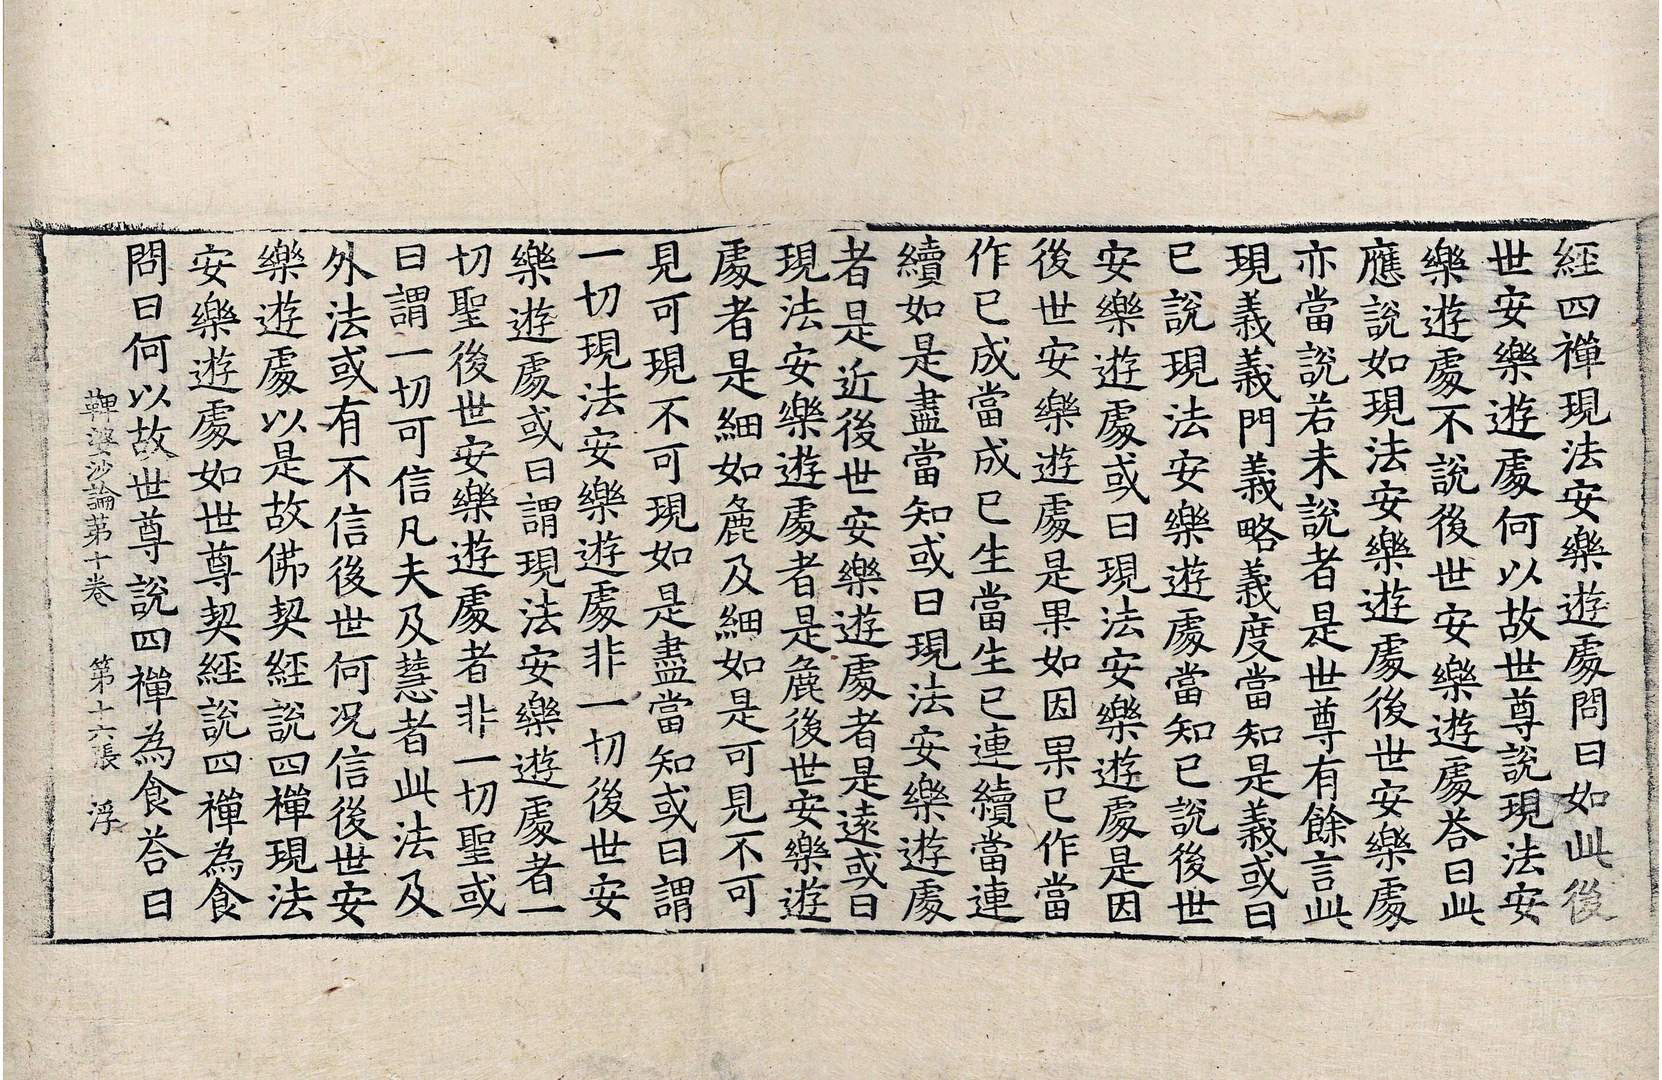 經四禪現法安樂遊處問曰如此後
世安樂遊處何以故世尊說現法安
樂遊處不說後世安樂遊處荅曰此
應說如現法安樂遊處後世安樂處
亦當說若未說者是世尊有餘言此
現義義門義略義度當知是義或曰
已說現法安樂遊處當知已說後世
安樂遊處或曰現法安樂遊處是因
後世安樂遊處是果如因果已作當
作已成當成已生當生已連續當連
續如是盡當知或曰現法安樂遊處
者是近後世安樂遊處者是遠或曰
現法安樂遊處者是麁後世安樂遊
處者是細如麁及細如是可見不可
見可現不可現如是盡當知或曰謂
一切現法安樂遊處非一切後世安
樂遊處或曰謂現法安樂遊處者一
切聖後世安樂遊處者非一切聖或
曰謂一切可信凡夫及慧者此法及
外法或有不信後世何況信後世安
樂遊處以是故佛契經說四禪現法
安樂遊處如世尊契經說四禪為食
問曰何以故世尊說四禪為食荅曰
鞞婆沙論第十卷 第十六張 浮